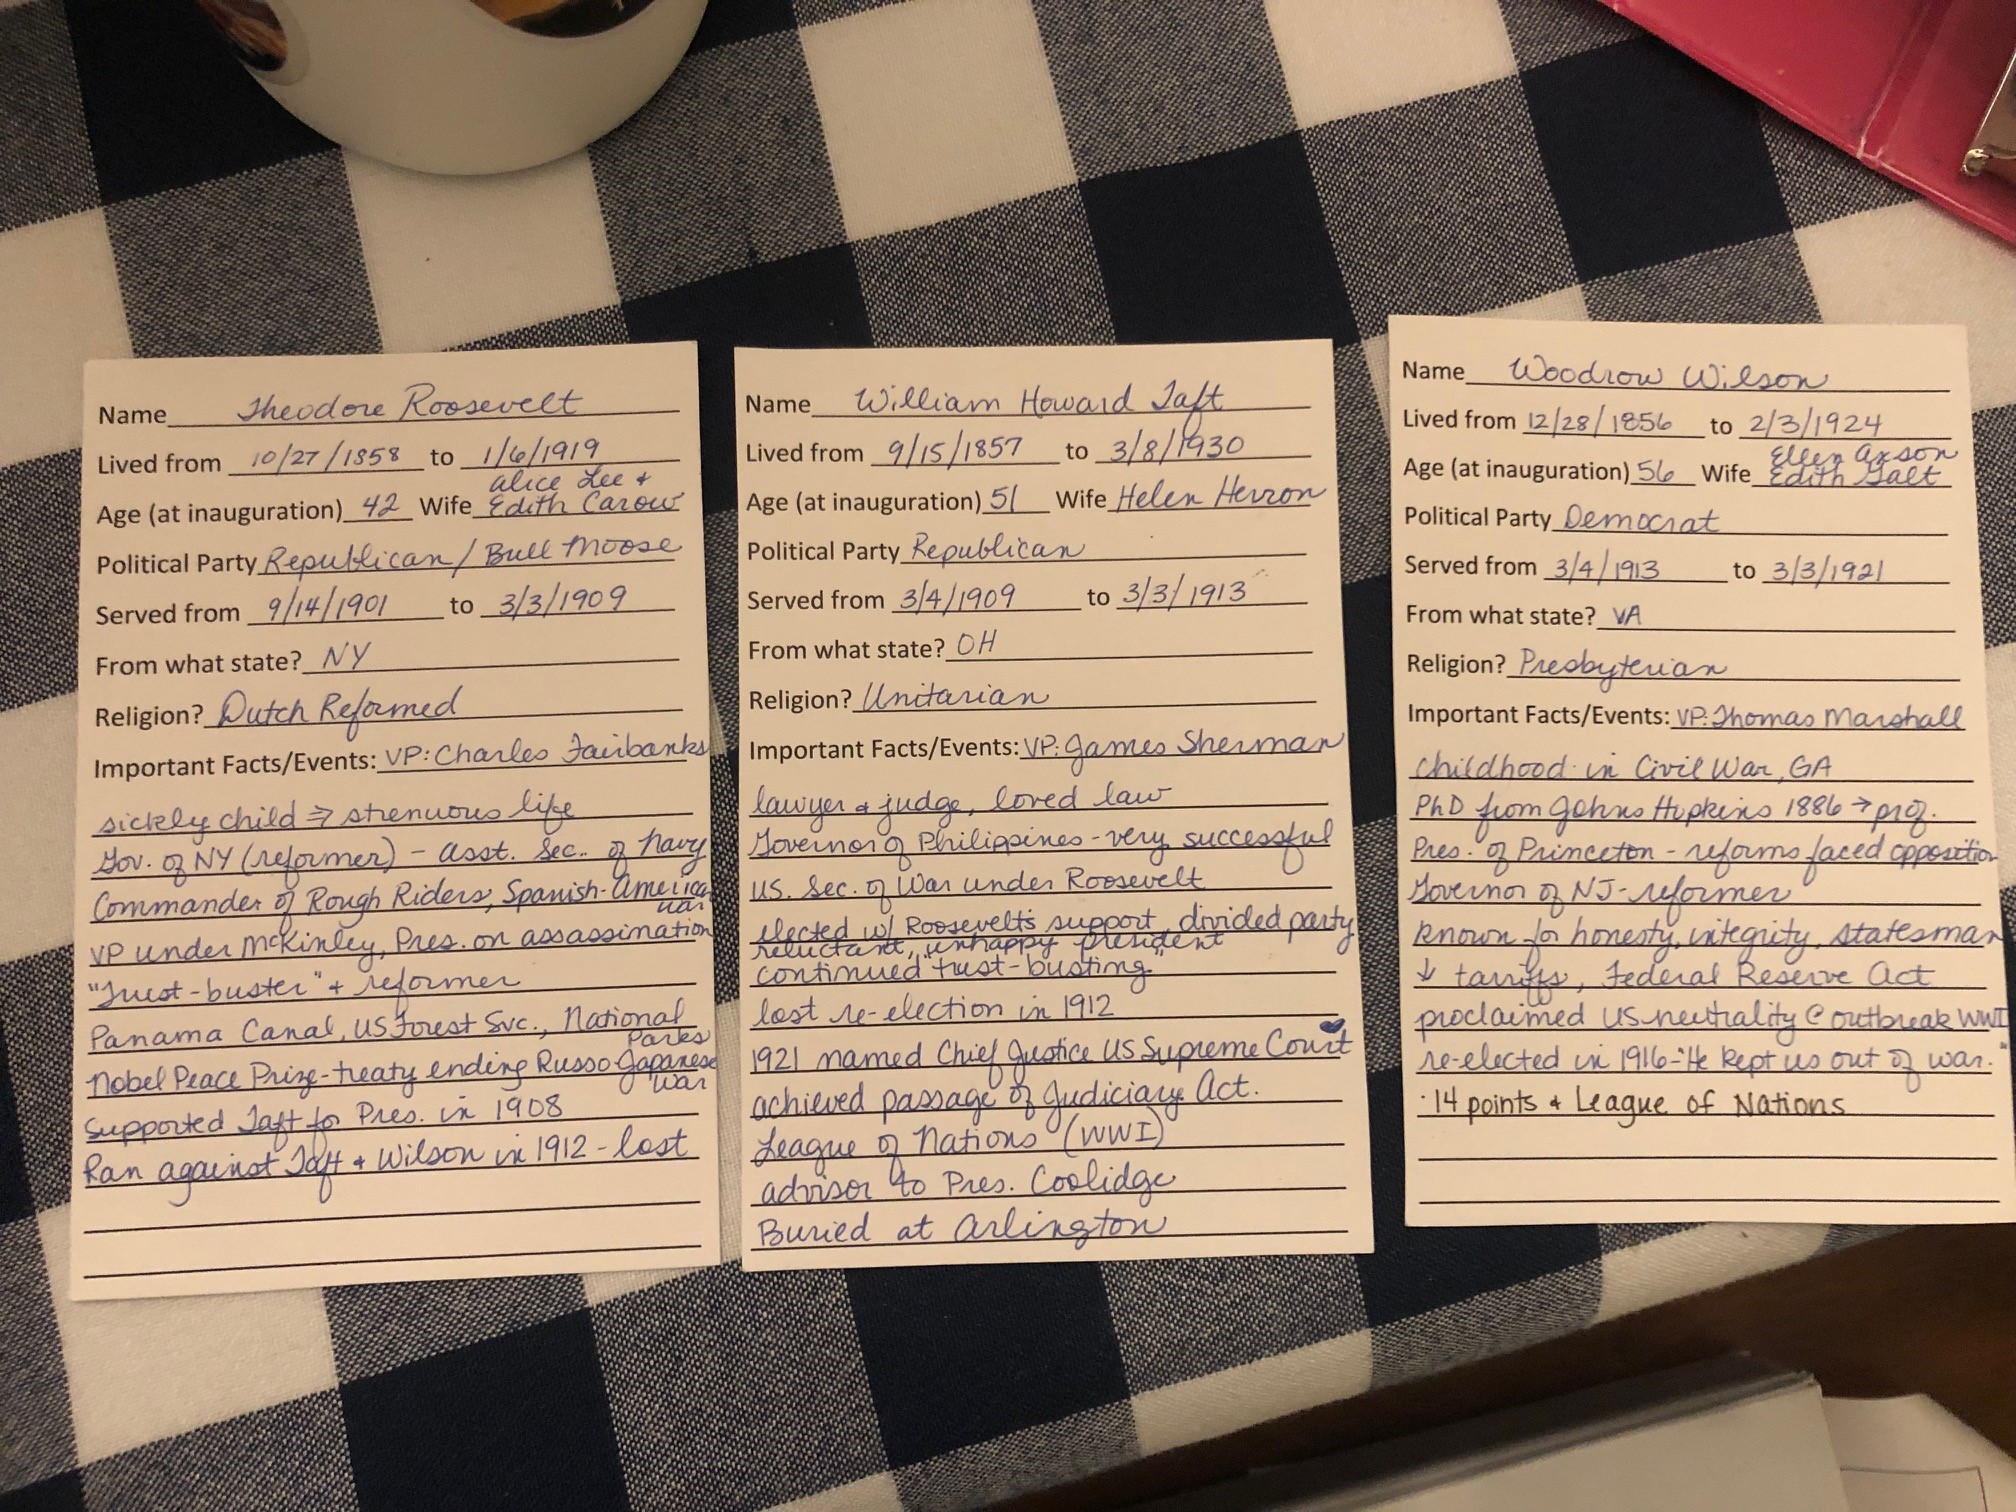 Name Theodore Roosevelt
Lived from 10/27/1858 to 1/6/1919
Alice Lee +
Age (at inauguration) 42 Wife Edith Carow
Political Party Republican / Bull Moose
Served from 9/14/1901 to 3/3/1909
From what state? NY
Religion? Dutch Reformed
Important Facts/Events: VP: Charles Fairbanks
sickly child ⇒ strenuous life
Gov. of NY (reformer) - Asst. Sec. of Navy
Commander of Rough Riders, Spanish-American
war
VP under McKinley, Pres. on assassination
"Trust-buster" + reformer
Panama Canal, US Forest Svc., National
Parks
Nobel Peace Prize-treaty ending Russo-Japanese
war
Supported Taft for Pres. in 1908
Ran against Taft + Wilson in 1912 - lost
Name William Howard Taft
Lived from 9/15/1857 to 3/8/1930
Age (at inauguration) 51 Wife Helen Herron
Political Party Republican
Served from 3/4/1909 to 3/3/1913
From what state? OH
Religion? Unitarian
Important Facts/Events: VP: James Sherman
lawyer + judge, loved law
Governor of Philippines - very successful
US. Sec. of War under Roosevelt
elected w/ Roosevelt's support, divided party
reluctant, unhappy president
continued "trust-busting"
lost re-election in 1912
1921 named Chief Justice US Supreme Court
achieved passage of Judiciary Act.
League of Nations (WWI)
advisor to Pres. Coolidge
Buried at Arlington
Name Woodrow Wilson
Lived from 12/28/1856 to 2/3/1924
Ellen Axson
Age (at inauguration) 56 Wife Edith Galt
Political Party Democrat
Served from 3/4/1913 to 3/3/1921
From what state? VA
Religion? Presbyterian
Important Facts/Events: VP: Thomas Marshall
childhood in Civil War, GA
PhD from Johns Hopkins 1886 → prof.
Pres. of Princeton - reforms faced opposition
Governor of NJ - reformer
known for honesty, integrity, statesman
↓ tariffs, Federal Reserve Act
proclaimed US neutrality @ outbreak WWI
re-elected in 1916 - "He kept us out of war."
· 14 points + League of Nations